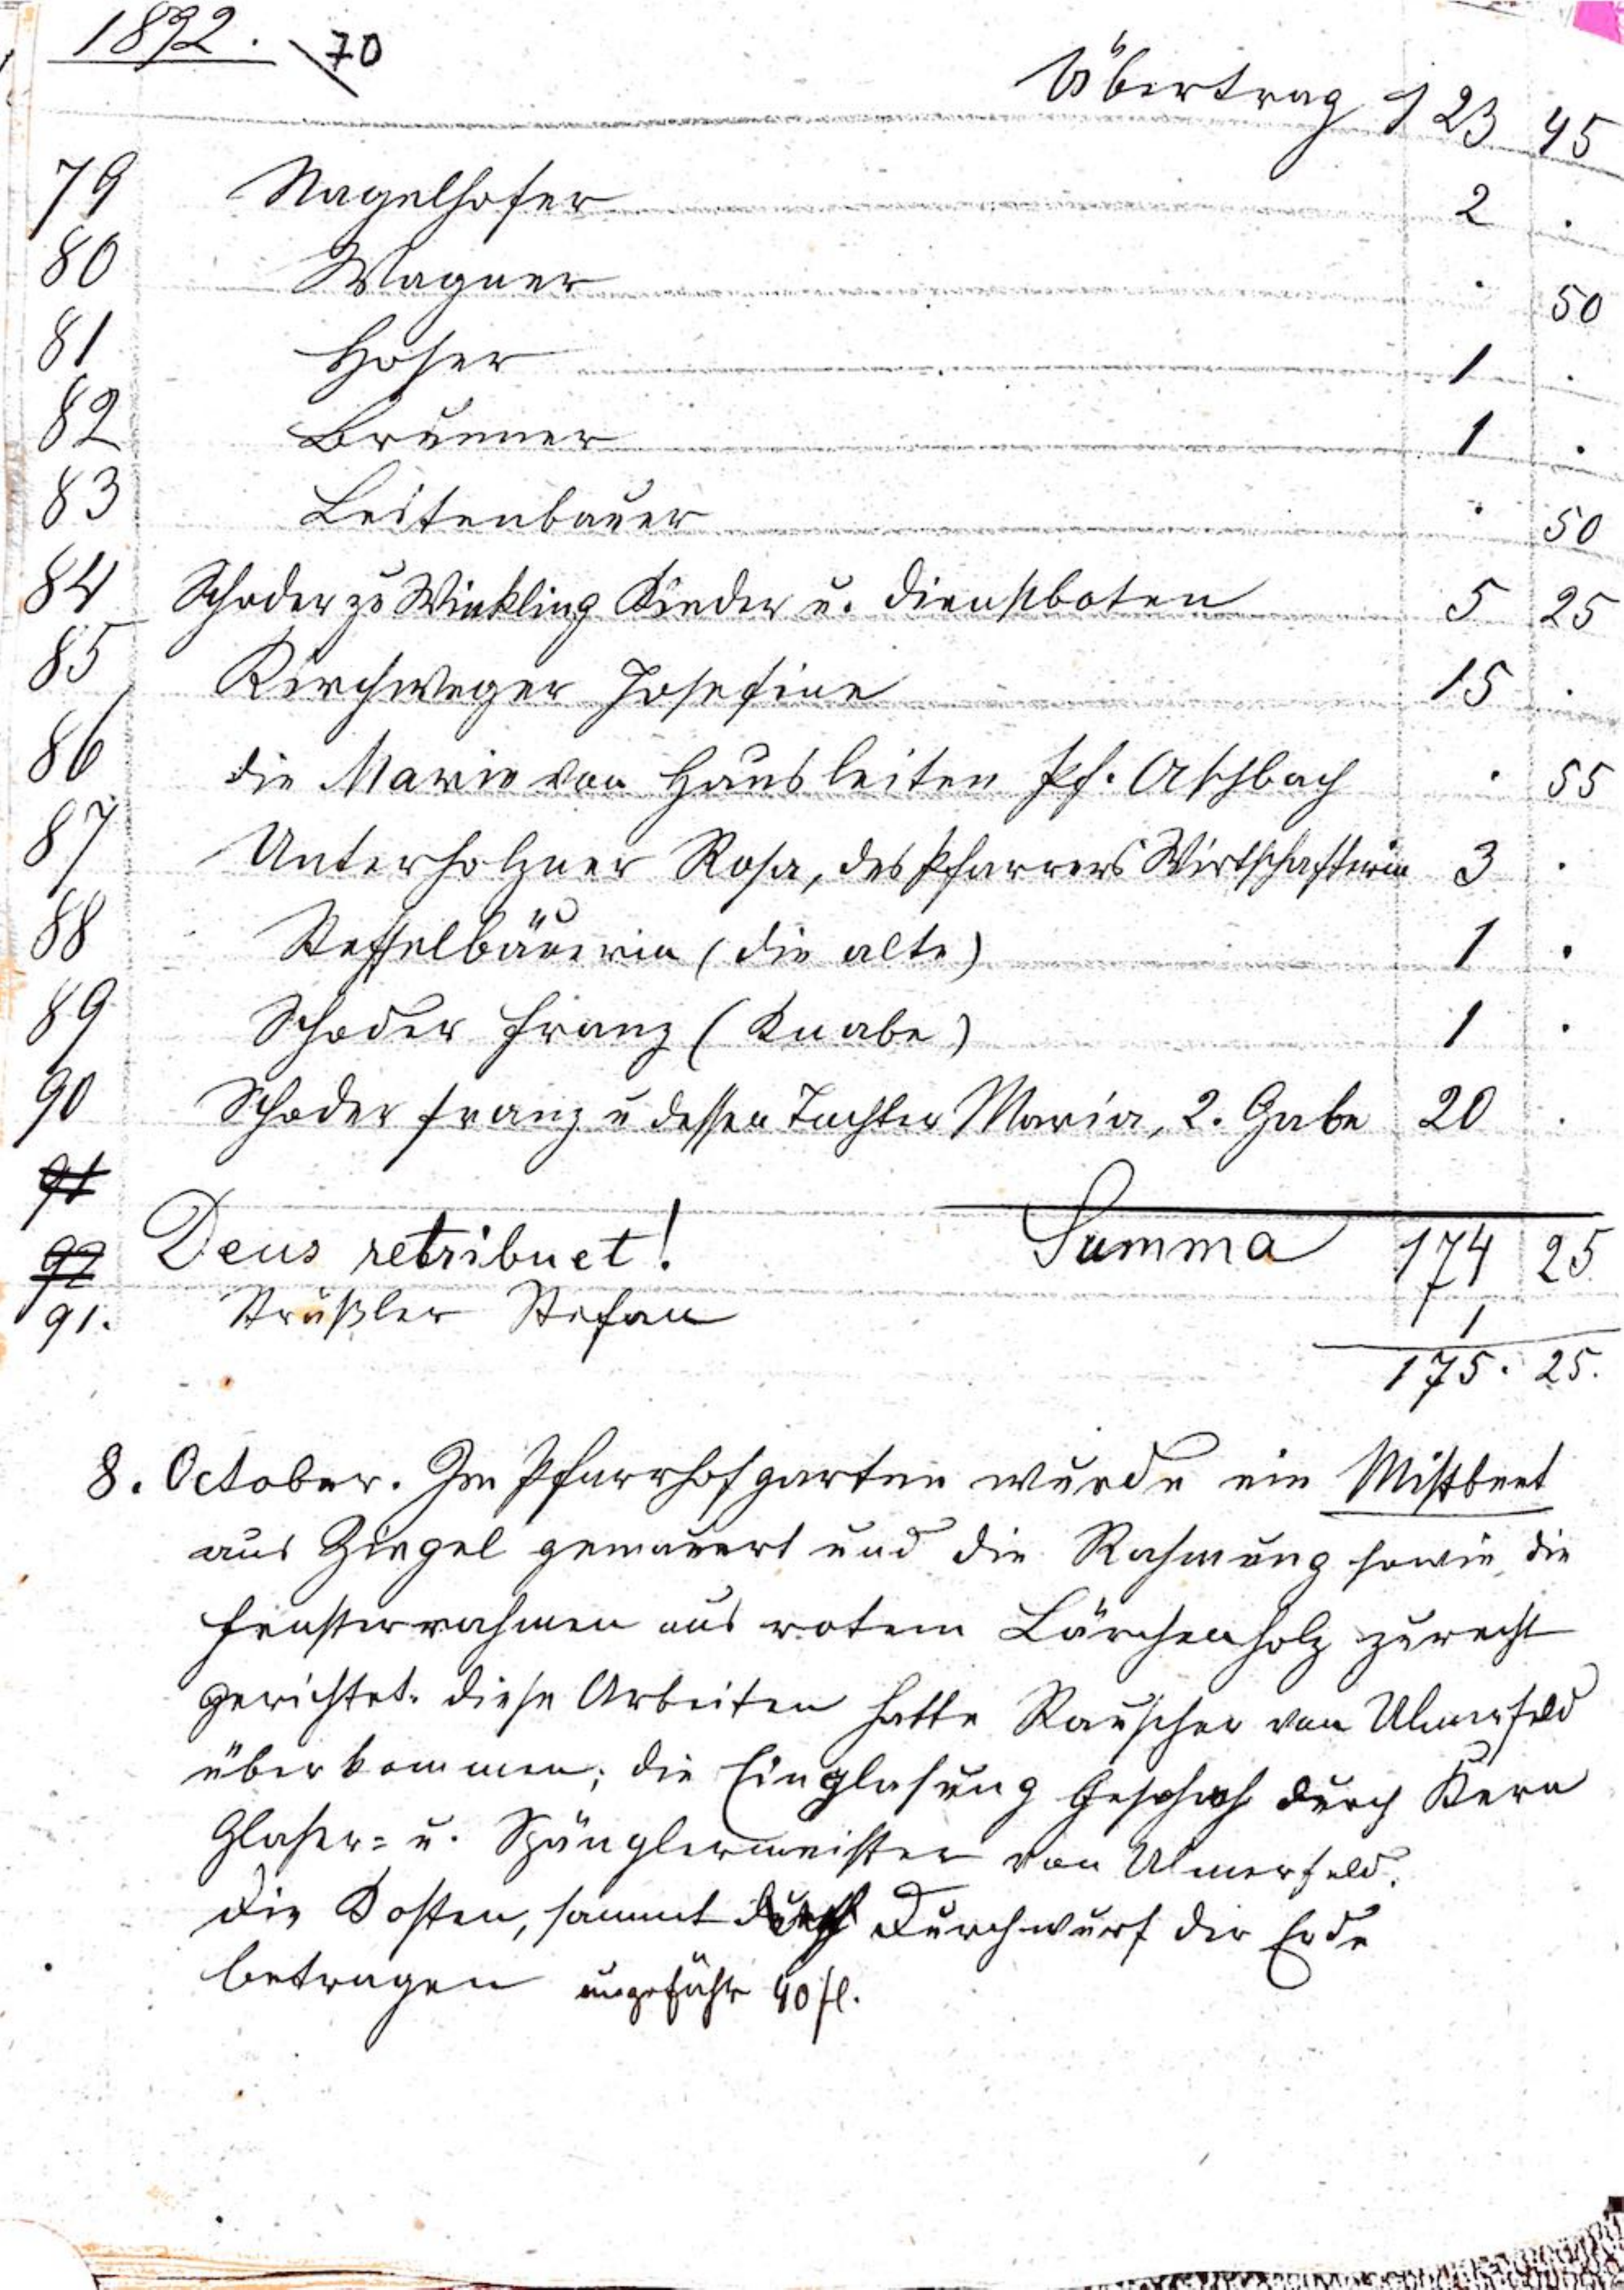 1892. 70
Übertrag 123 45
79 Nagelhofer 2 .
80 Wagner . 50
81 Hofer 1 .
82 Brunner 1 .
83 Leitenbauer . 50
84 Schoder zu Winkling Kinder u. Dienstboten 5 25
85 Kirchweger Josefine 15 .
86 die Marie von Hausleiten Pf. Aschbach . 55
87 Unterholzner Rosa, des Pfarrers Wirtschafterin 3 .
88 Steffelbäuerin (die alte) 1 .
89 Schoder Franz (Knabe) 1 .
90 Schoder Franz u dessen Tochter Maria, 2. Gabe 20 .
91
92 Deus retribuet! Summa 174 25
91. Sträußler Stefan 1
175. 25.
8. October. Im Pfarrhofgarten wurde ein Mistbeet
aus Ziegel gemauert und die Rahmung sowie die
Fensterrahmen aus rotem Lärchenholz zurecht
gerichtet. Diese Arbeiten hatte Rauscher von Ulmerfeld
überkommen; die Einglasung geschah durch Kern
Glaser= u. Spänglermeister von Ulmerfeld.
Die Kosten, sammt Durchwurf der Erde
betragen ungefähr 40 fl.